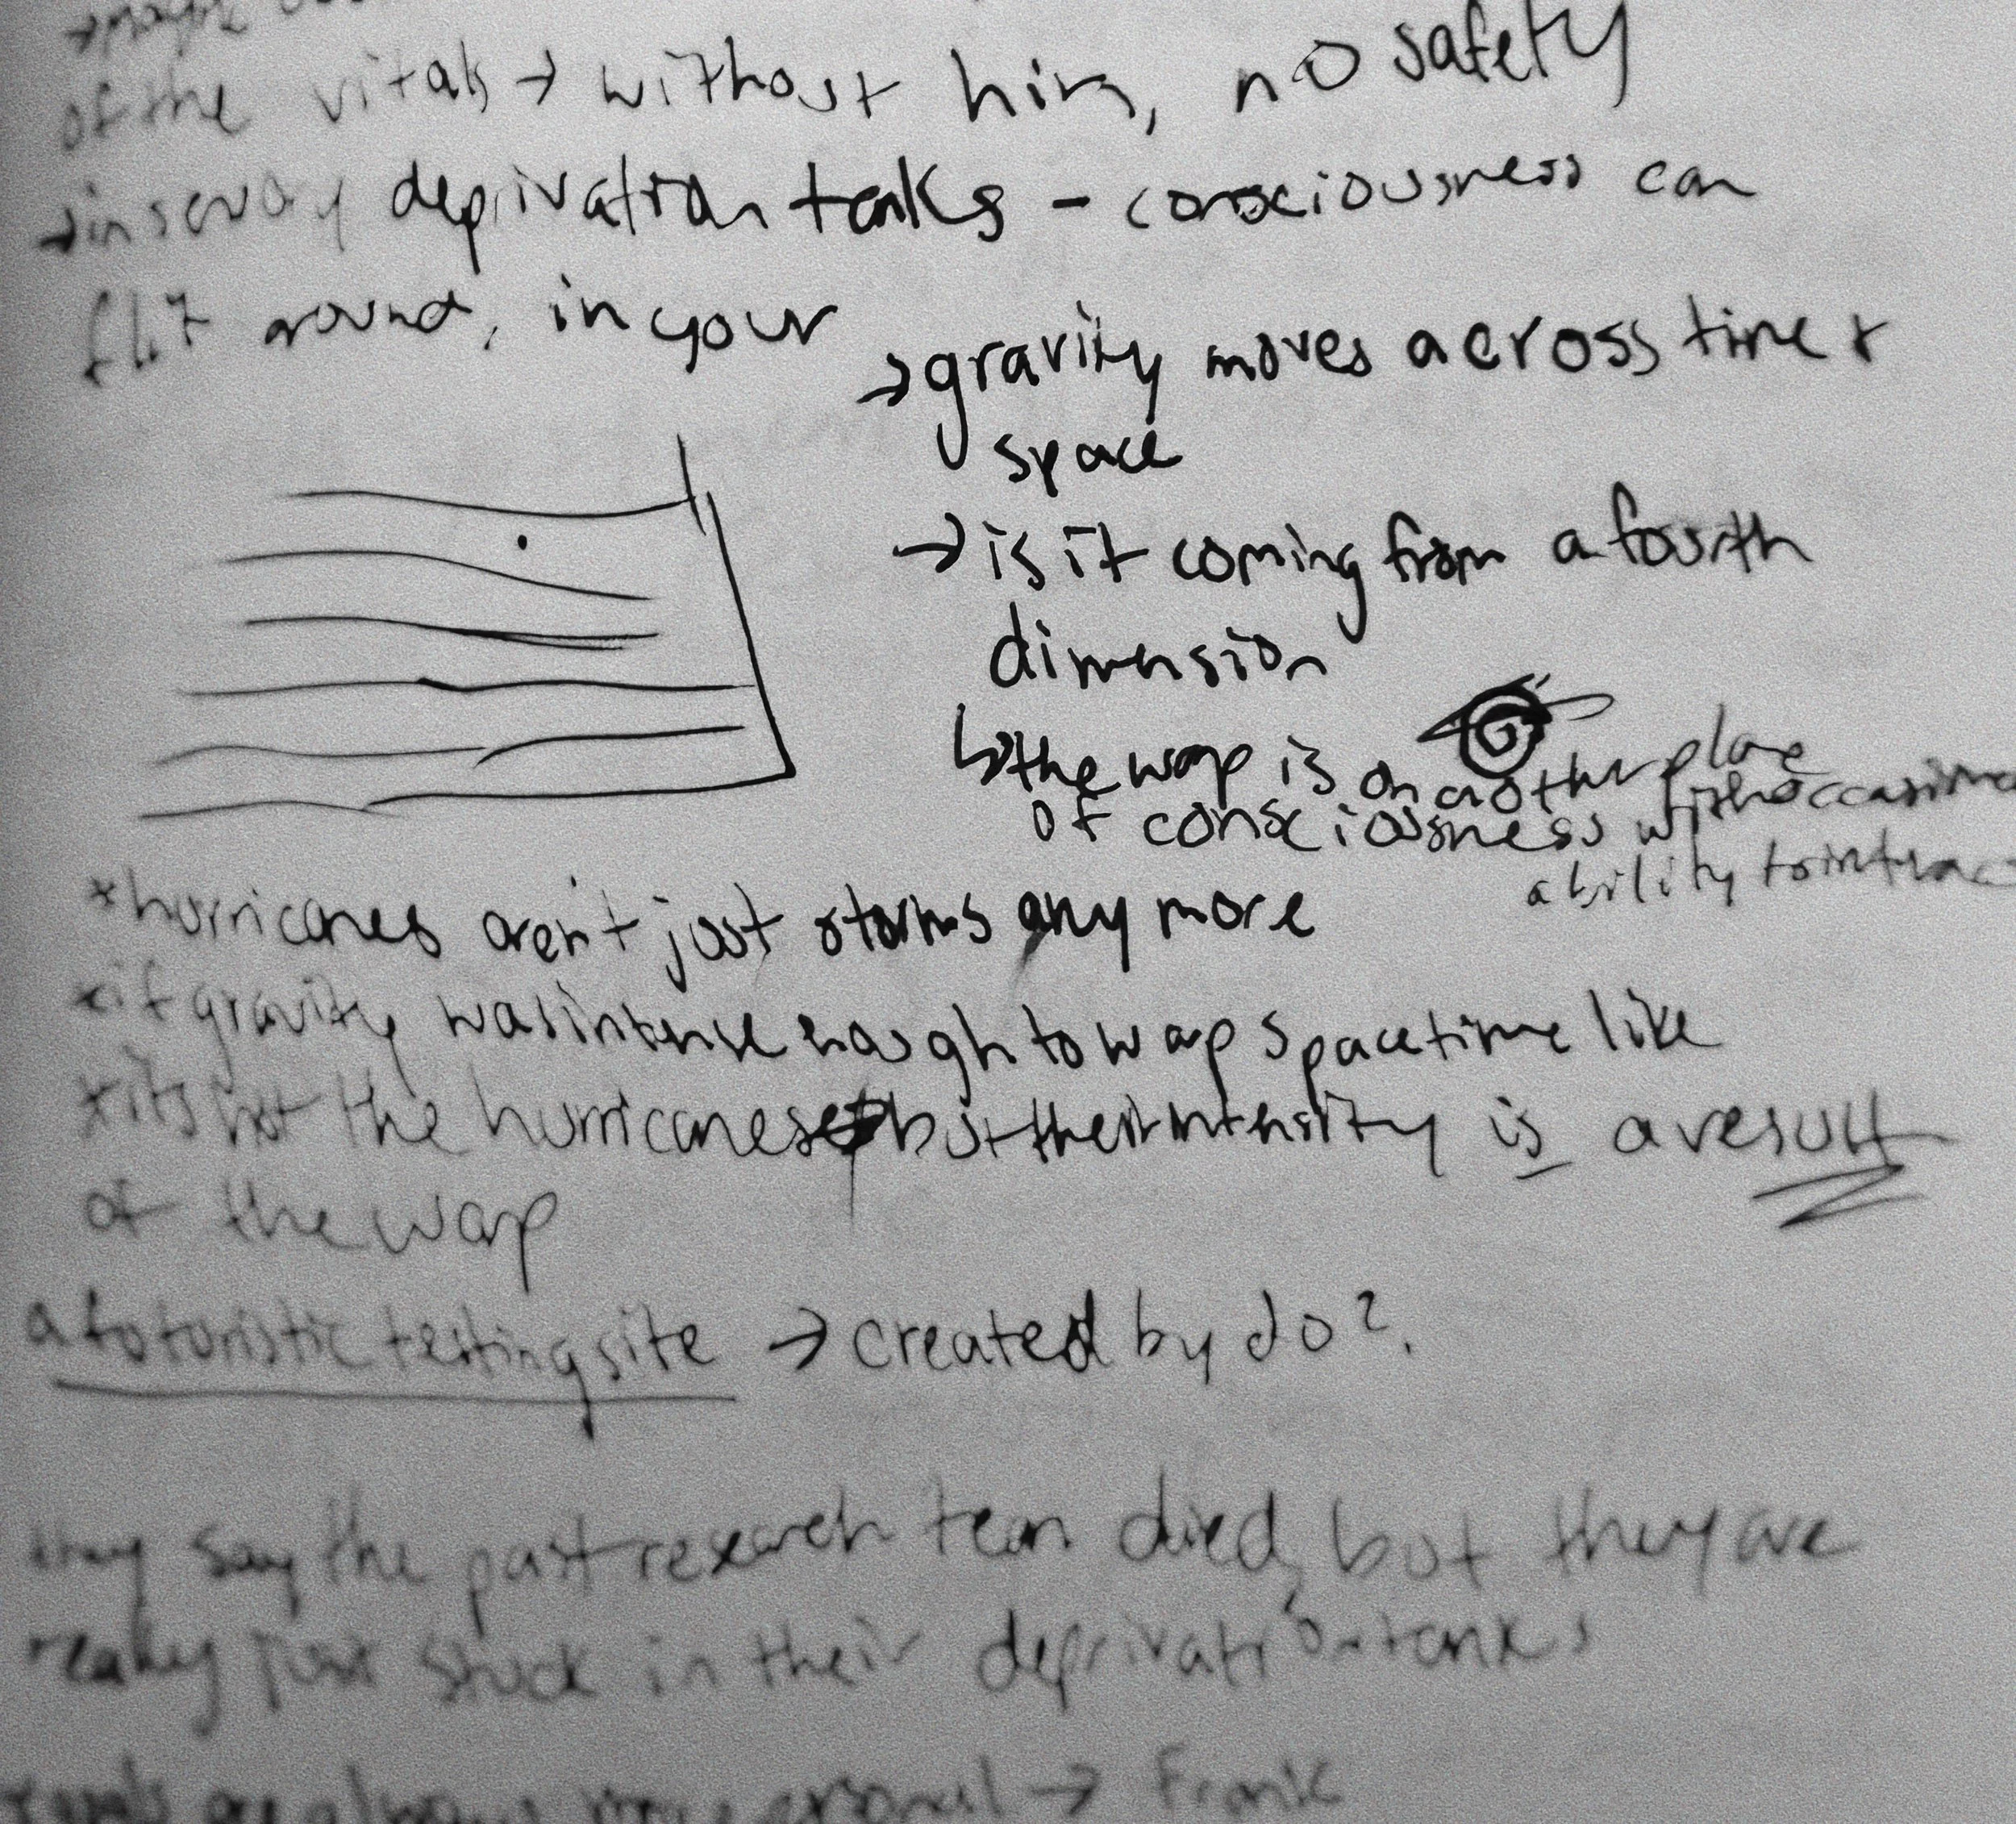 →maybe
of the vitals → without him, no safety
→in sensory deprivation tanks - consciousness can
flit around, in your
→gravity moves across time +
space
→is it coming from a fourth
dimension
↳the warp is on another plane
of consciousness with occasional
ability to interac
*hurricanes aren't just storms any more
*if gravity was intense enough to warp spacetime like
*its not the hurricanes but their intensity is a result
of the warp
a futuristic testing site → created by do?.
they say the past research team died, but they are
really just stuck in their deprivation tanks
are always more personal → Frank